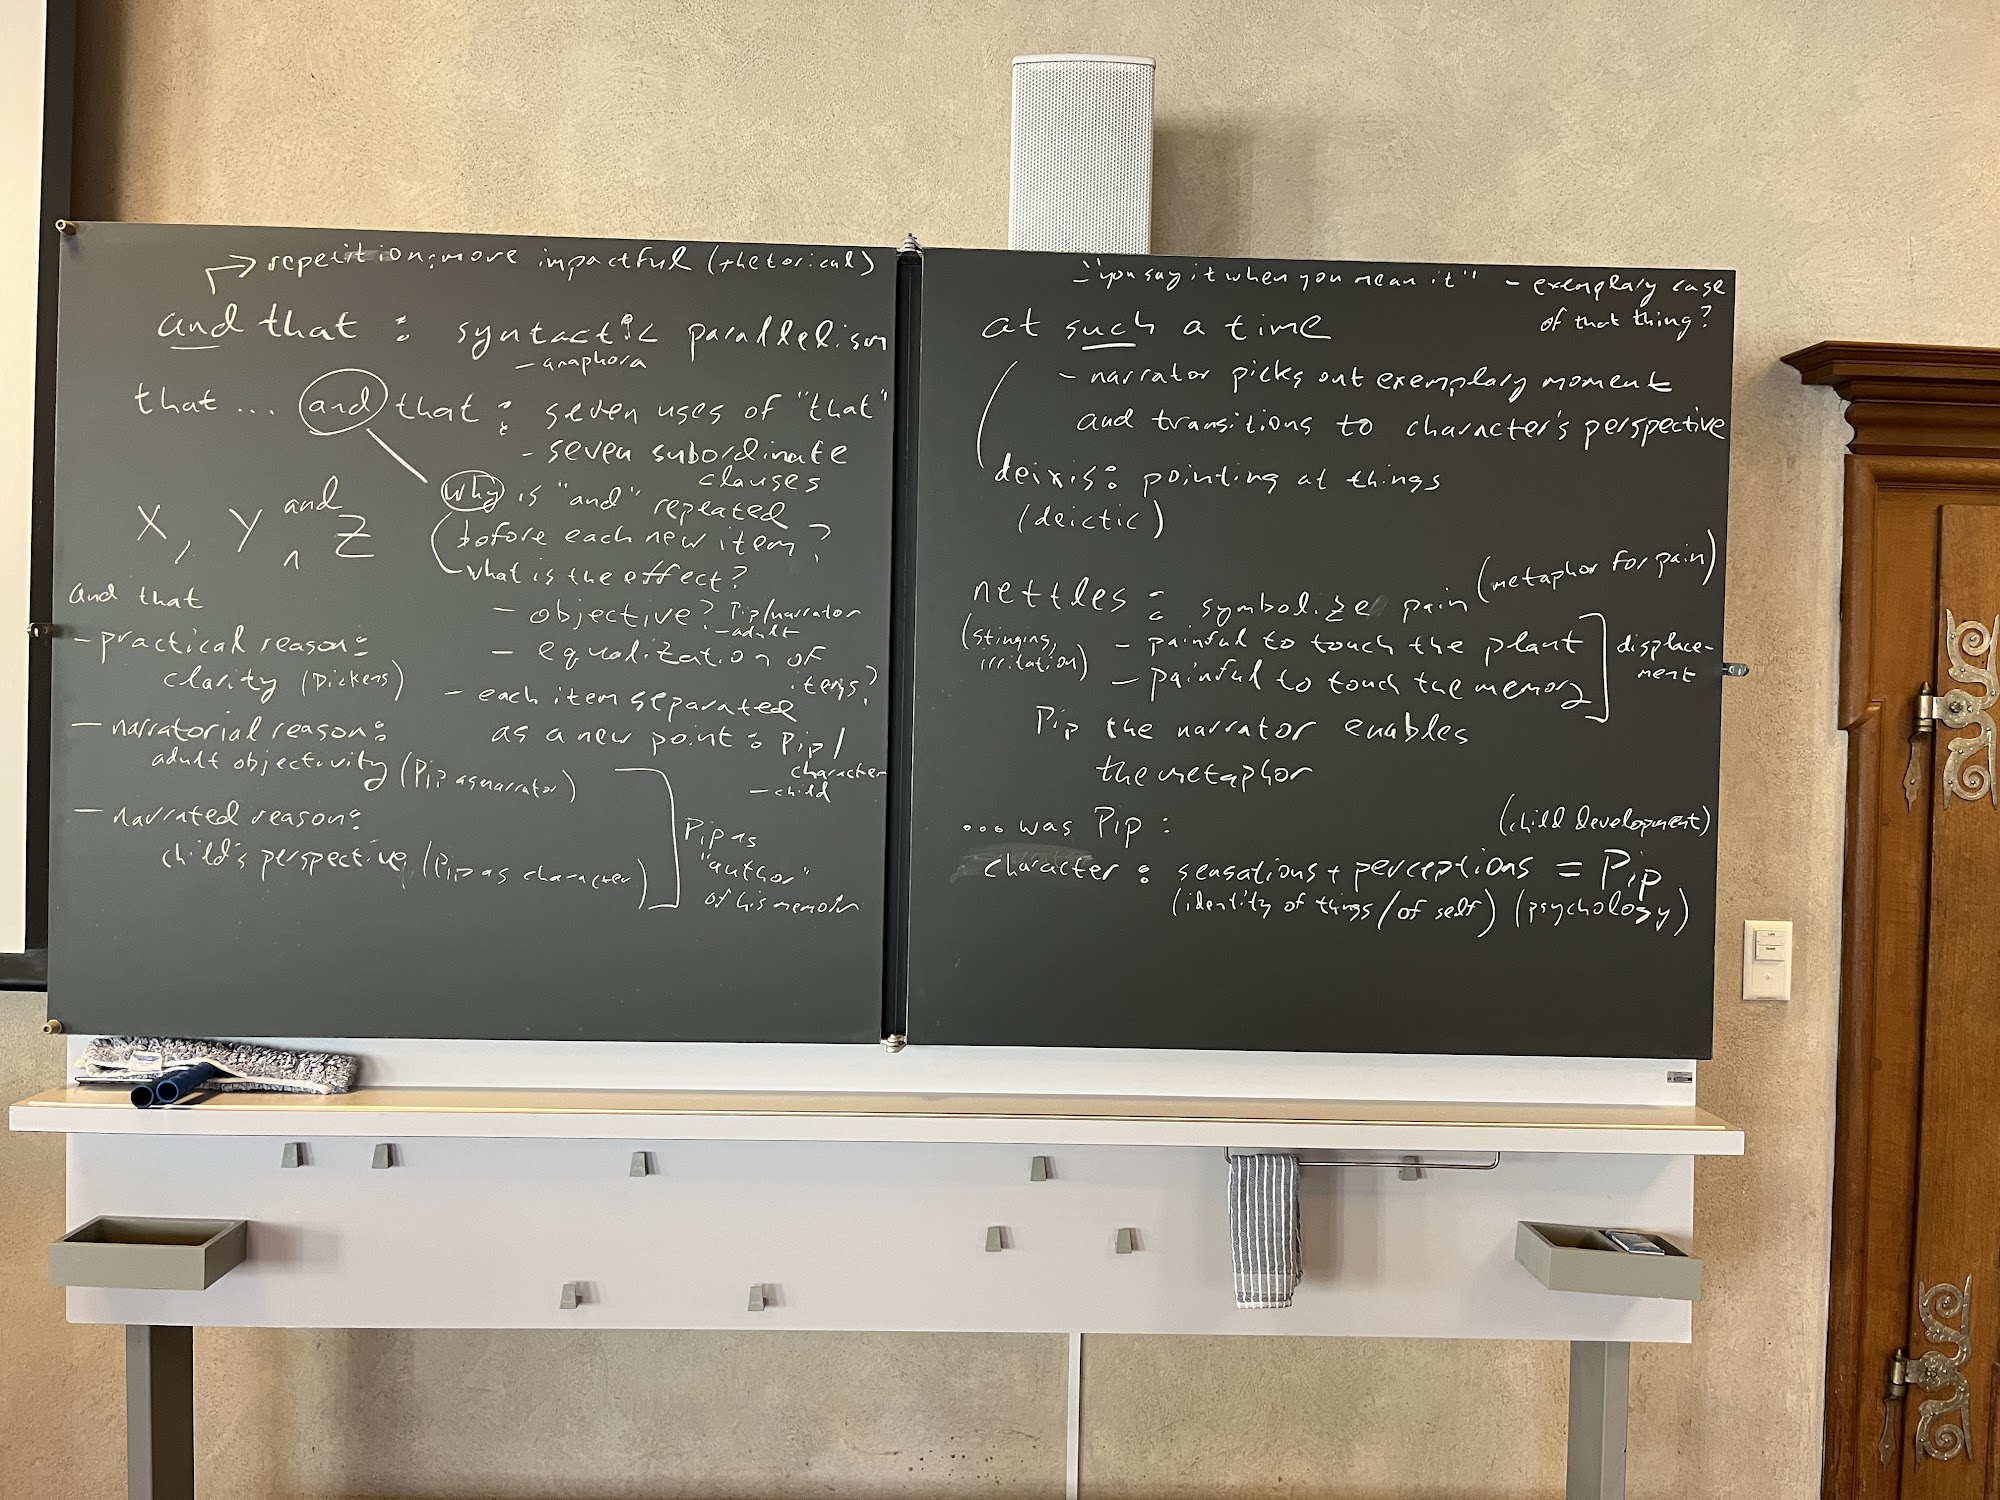 repetition: more impactful (rhetorical)
and that : syntactic parallelism
- anaphora
that ... and that : seven uses of "that"
- seven subordinate
clauses
X, Y and Z
^
why is "and" repeated
before each new item?
what is the effect?
- objective? Pip/narrator
- adult
- equalization of
items?
- each item separated
as a new point : Pip/
character
- child
and that
- practical reason:
clarity (Dickens)
- narratorial reason:
adult objectivity (Pip as narrator)
- narrated reason:
child's perspective (Pip as character)
Pip as
"author"
of his memoir
- "you say it when you mean it" - exemplary case
of that thing?
at such a time
- narrator picks out exemplary moment
and transitions to character's perspective
deixis: pointing at things
(deictic)
nettles : symbolize pain (metaphor for pain)
(stinging,
irritation)
- painful to touch the plant
- painful to touch the memory
displace-
ment
Pip the narrator enables
the metaphor
... was Pip :
(child development)
character : sensations + perceptions = Pip
(identity of things/of self) (psychology)